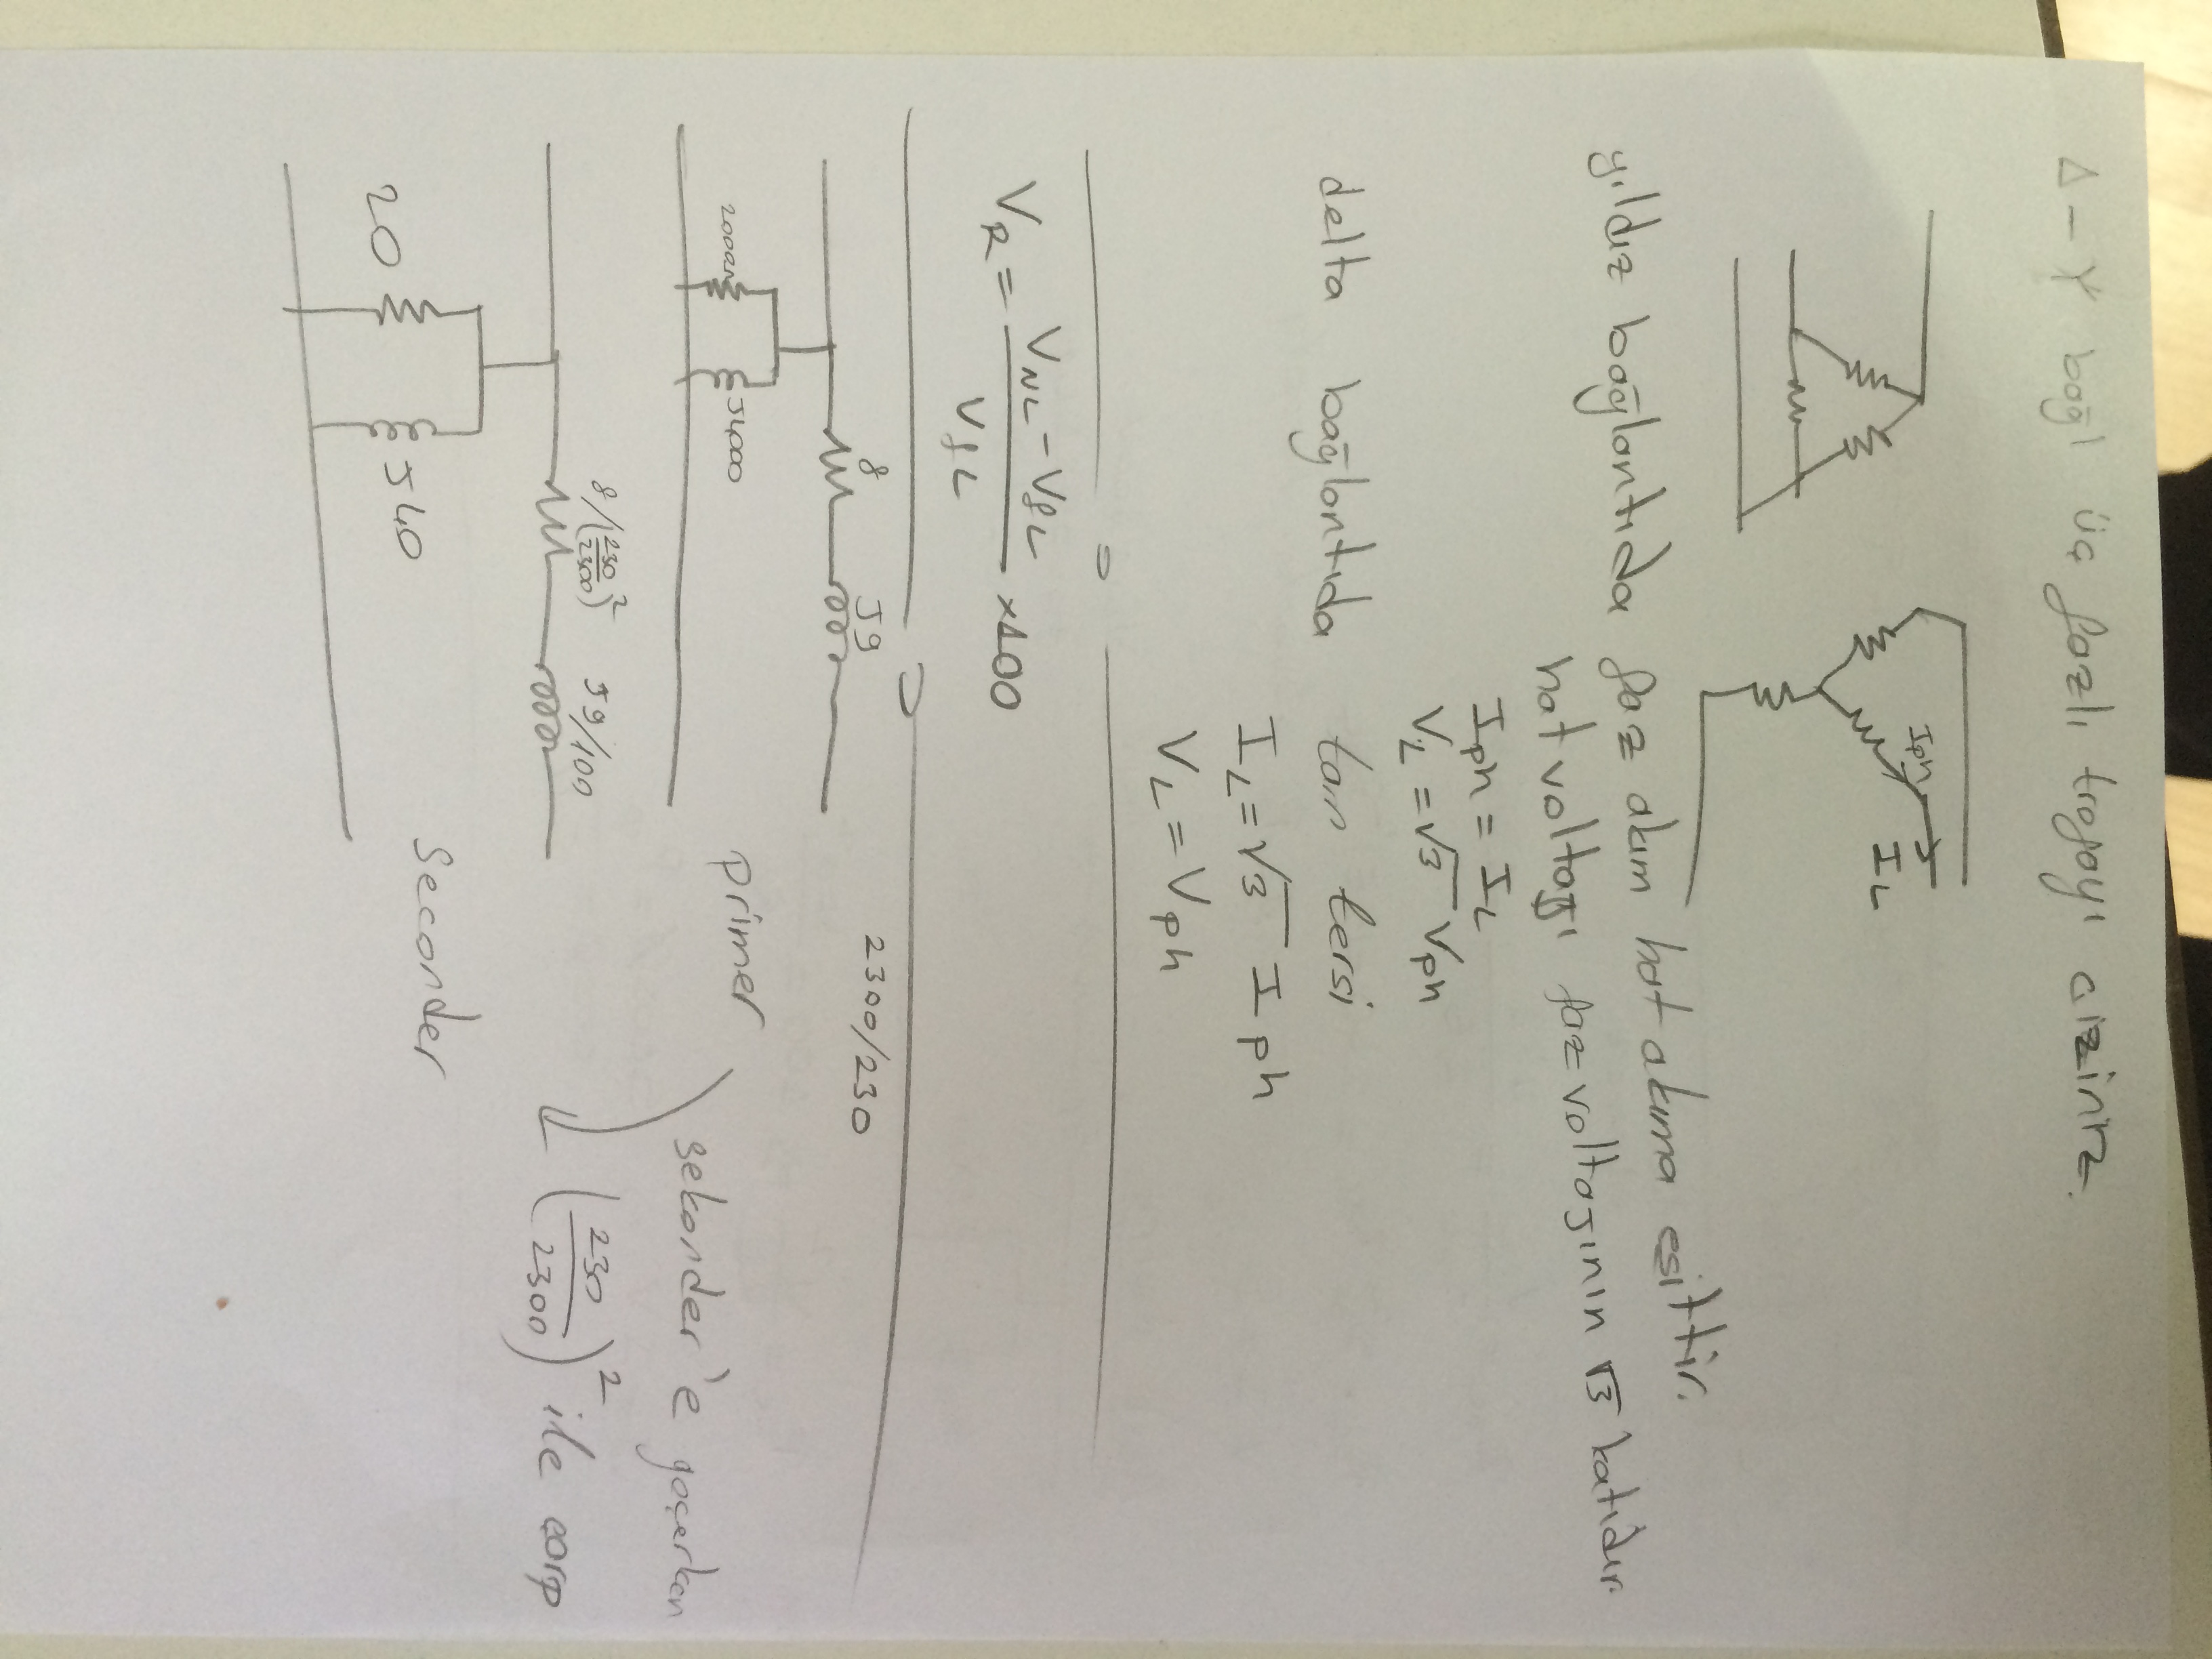 Δ-Y bağlı üç fazlı trafoyı çiziniz.
Iph
IL
yıldız bağlantıda faz akım hat akıma eşittir.
hat voltajı faz voltajının √3 katıdır.
Iph = IL
VL = √3 Vph
delta bağlantıda tam tersi
IL = √3 Iph
VL = Vph
VR = (VNL - VfL) / VfL x100
8 J9 2300/230
2000Ω J4000 primer
sekonder'e geçerken
(230/2300)² ile çarp
8/(230/2300)² J9/100
20 J40 Seconder